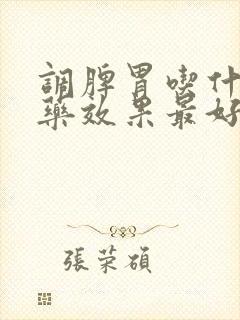 調脾胃喫什
藥效果最好
張榮碩